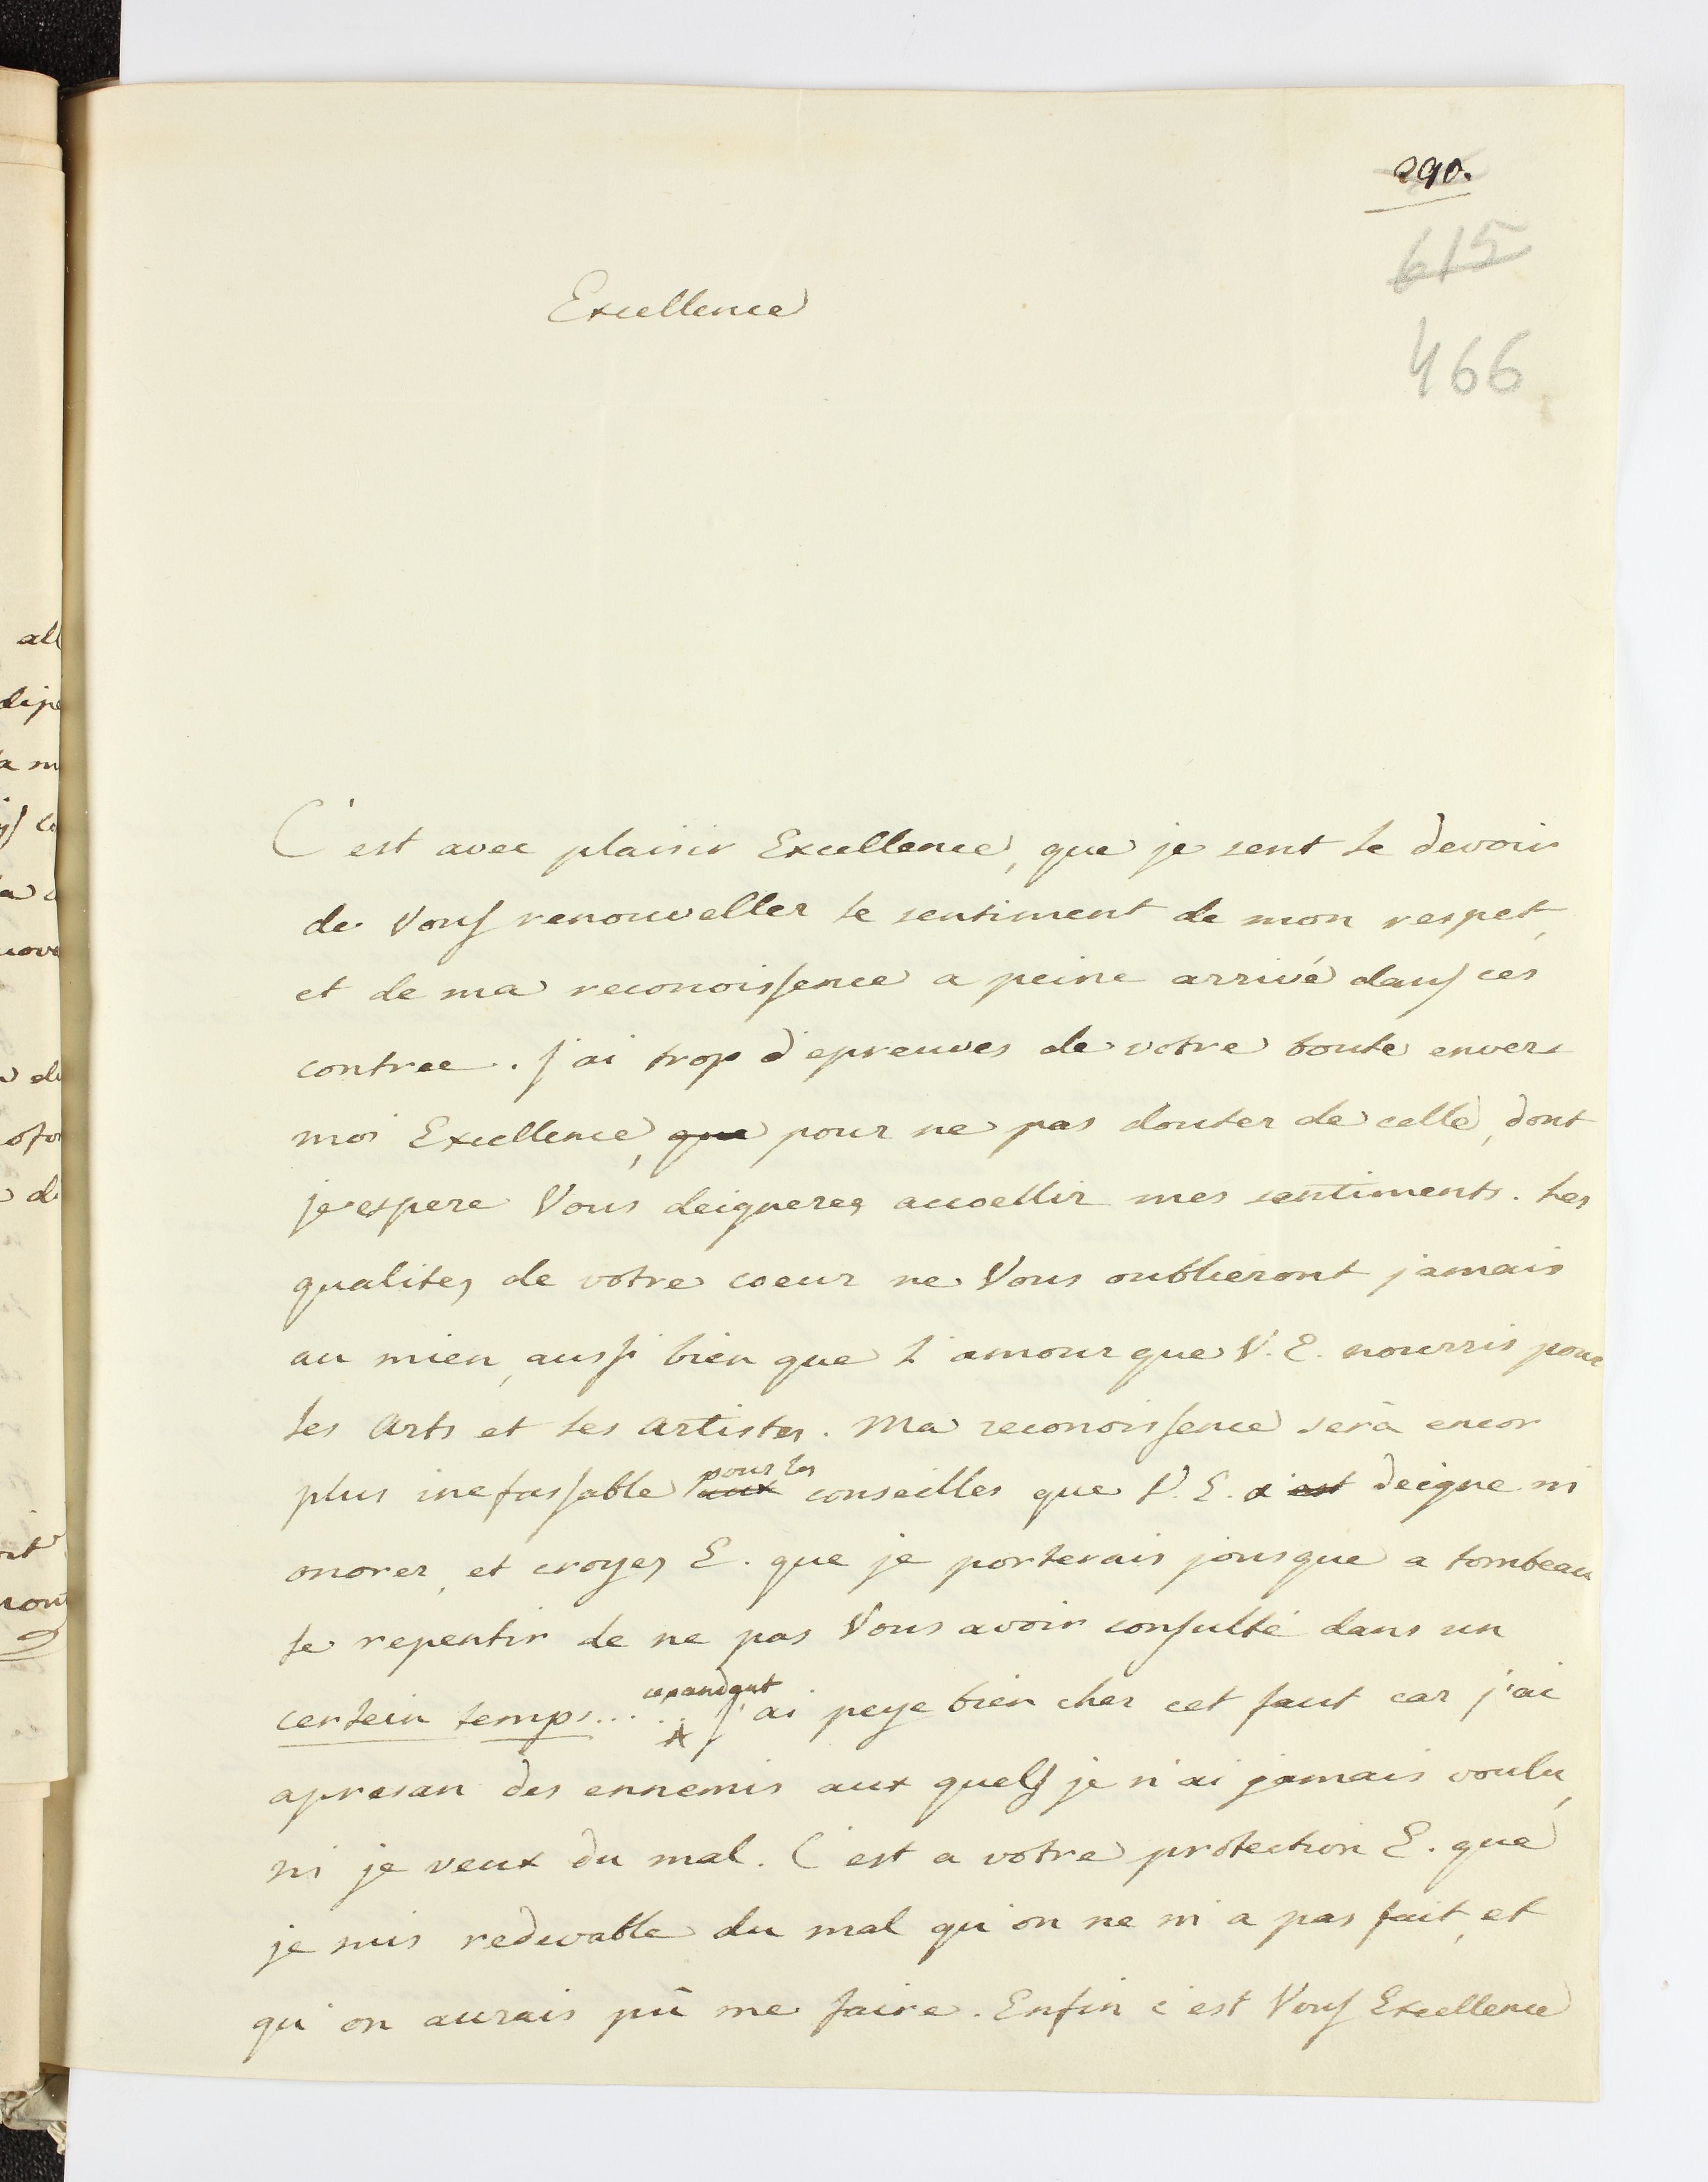 290.
615
466
Excellence
C'est avec plaisir Excellence, que je sent le devoir
de Vous renouveller le sentiment de mon respet,
et de ma reconoissence a peine arrivé dans ces
contree. J'ai trop d'epreuves de votre bonte envers
moi Excellence, que pour ne pas douter de celle, dont
je espere Vous deignerez accoellir mes sentiments. Les
qualitez de votre coeur ne Vous oublieront jamais
au mien, aussi bien que l'amour que V. E. nourris pour
les Arts et les Artistes. Ma reconoissence serà encor
pour les
plus inefassable aux conseilles que V. E. a est deigne m'
onorer, et croyez E. que je porterais jousque a tombeau
le repentir de ne pas Vous avoir consulté dans un
cepandant
certein temps..... J'ai peye bien cher cet faut car j'ai
apresan des ennemis aux quels je n'ai jamais voulu,
ni je veux du mal. C'est a votre protection E. que
je suis redevable du mal qu'on ne m'a pas fait, et
qu'on aurais pû me faire. Enfin c'est Vous Excellence
all
a m